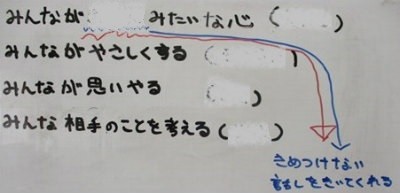 みんなが みたいな心 ( )
みんながやさしくする ( )
みんなが思いやる ( )
みんな相手のことを考える ( )
きめつけない
話しをきいてくれる